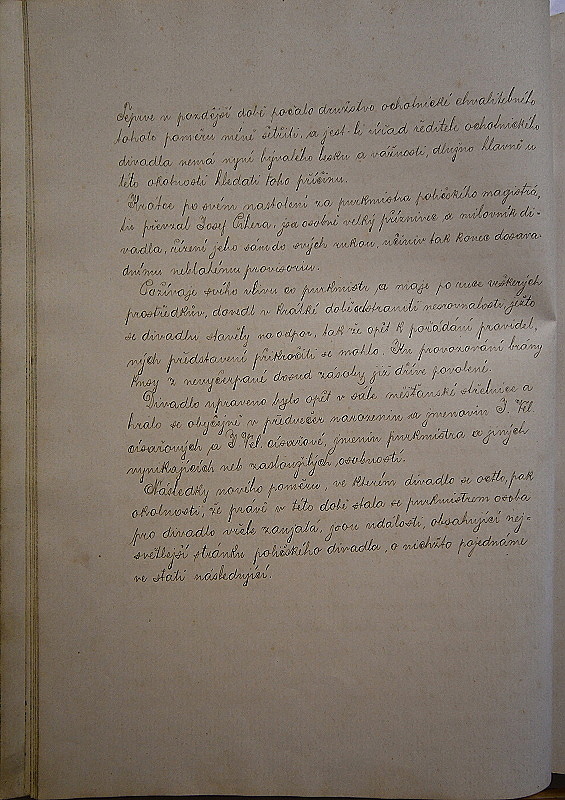 Teprve v pozdější době počalo družstvo ochotnické chvalitebného
tohoto poměru méně šetřiti, a jest-li úřad ředitele ochotnického
divadla nemá nyní bývalého lesku a vážnosti, dlužno hlavně v
této okolnosti hledati toho příčinu.
Krátce po svém nastolení za purkmistra poličského magistrá,
tu převzal Josef, jsa osobně velký příznivec a milovník di-
vadla, řízení jeho sám do svých rukou, učiniv tak konec dosava-
dnímu neblahému provisoriu.
Požívaje svého vlivu co purkmistr a maje po ruce veškerých
prostředkův, dovedl v krátké době odstraniti nesrovnalosti, ježto
se divadlu stavěly na odpor, tak že opět k pořádání pravidel,
ných představení překročiti se mohlo. Ku provozování brány
kusy z nevyčerpané dosud zásoby již dříve povolené.
Divadlo upraveno bylo opět v sále měšťanské střelnice a
hrálo se obyčejně v předvečer narozenin a jmenovin J. Vel.
císařových a J. Vel. císařové, jmenin purkmistra a jiných
vynikajících neb zasloužilých osobností.
Následky nového poměru, ve kterém divadlo se octlo, pak
okolnosti, že právě v této době stala se purkmistrem osoba
pro divadlo vřele zaujatá, jsou události, obsahující nej-
světlejší stránku poličského divadla, o nichžto pojednáme
ve stati následující.